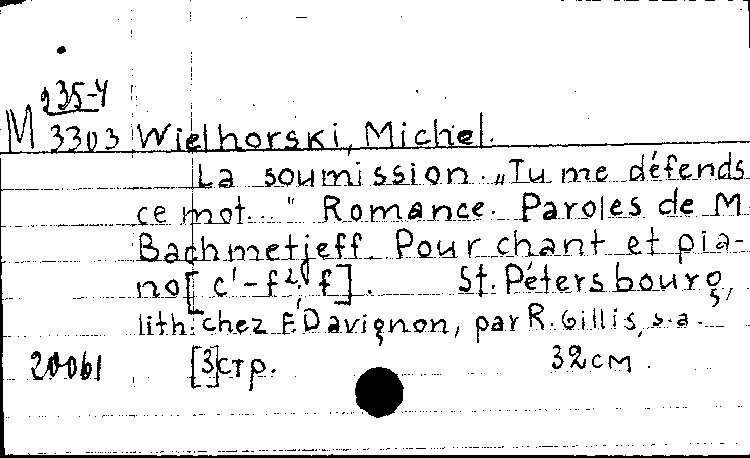 235-4
M 3303 Wielhorski, Michel.
La soumission. „Tu me défends
ce mot..." Romance. Paroles de M
Bachmetjeff. Pour chant et pia-
no [c'-f², f]. St. Pétersbourg,
lith. chez F. Davignon, par R. Gillis, s.a.
20061 [3] стр. 32 см.